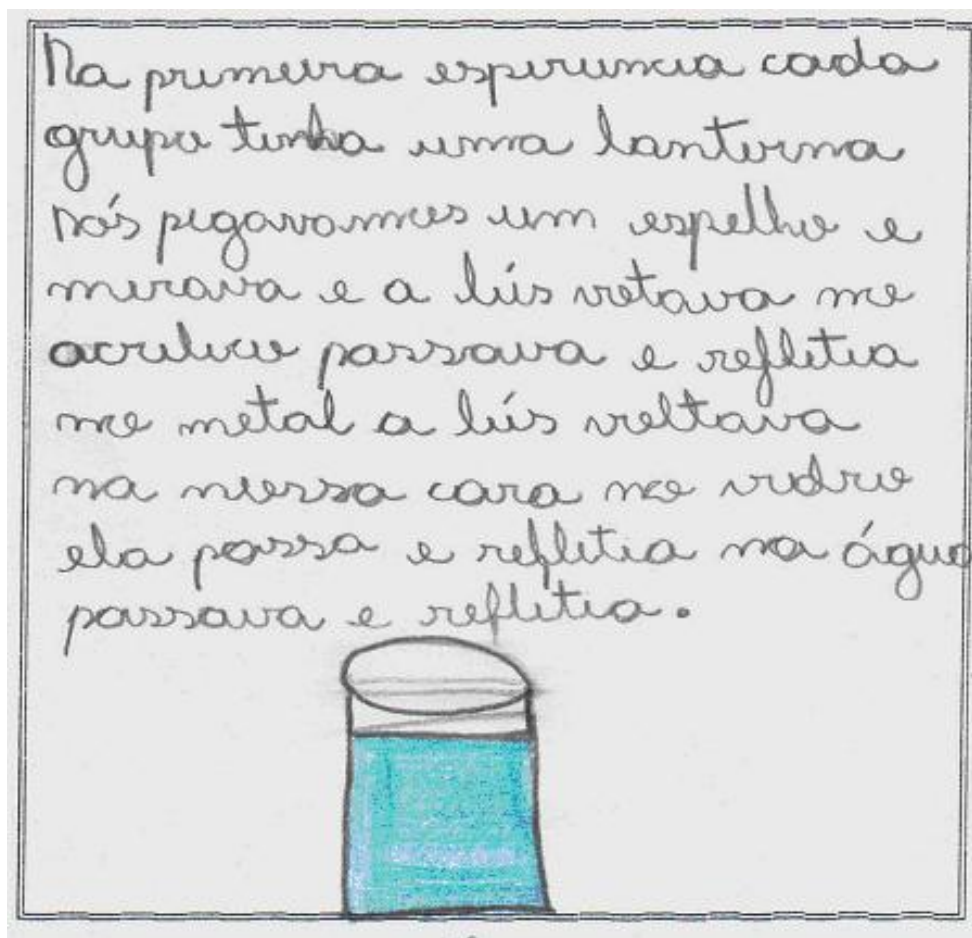 Na primeira esperiencia cada
grupo tinha uma lanterna
nós pegavamos um espelho e
mirava e a lús votava no
acrilico passava e refletia
no metal a lús voltava
na nossa cara no vidro
ela passa e refletia na água
passava e refletia.